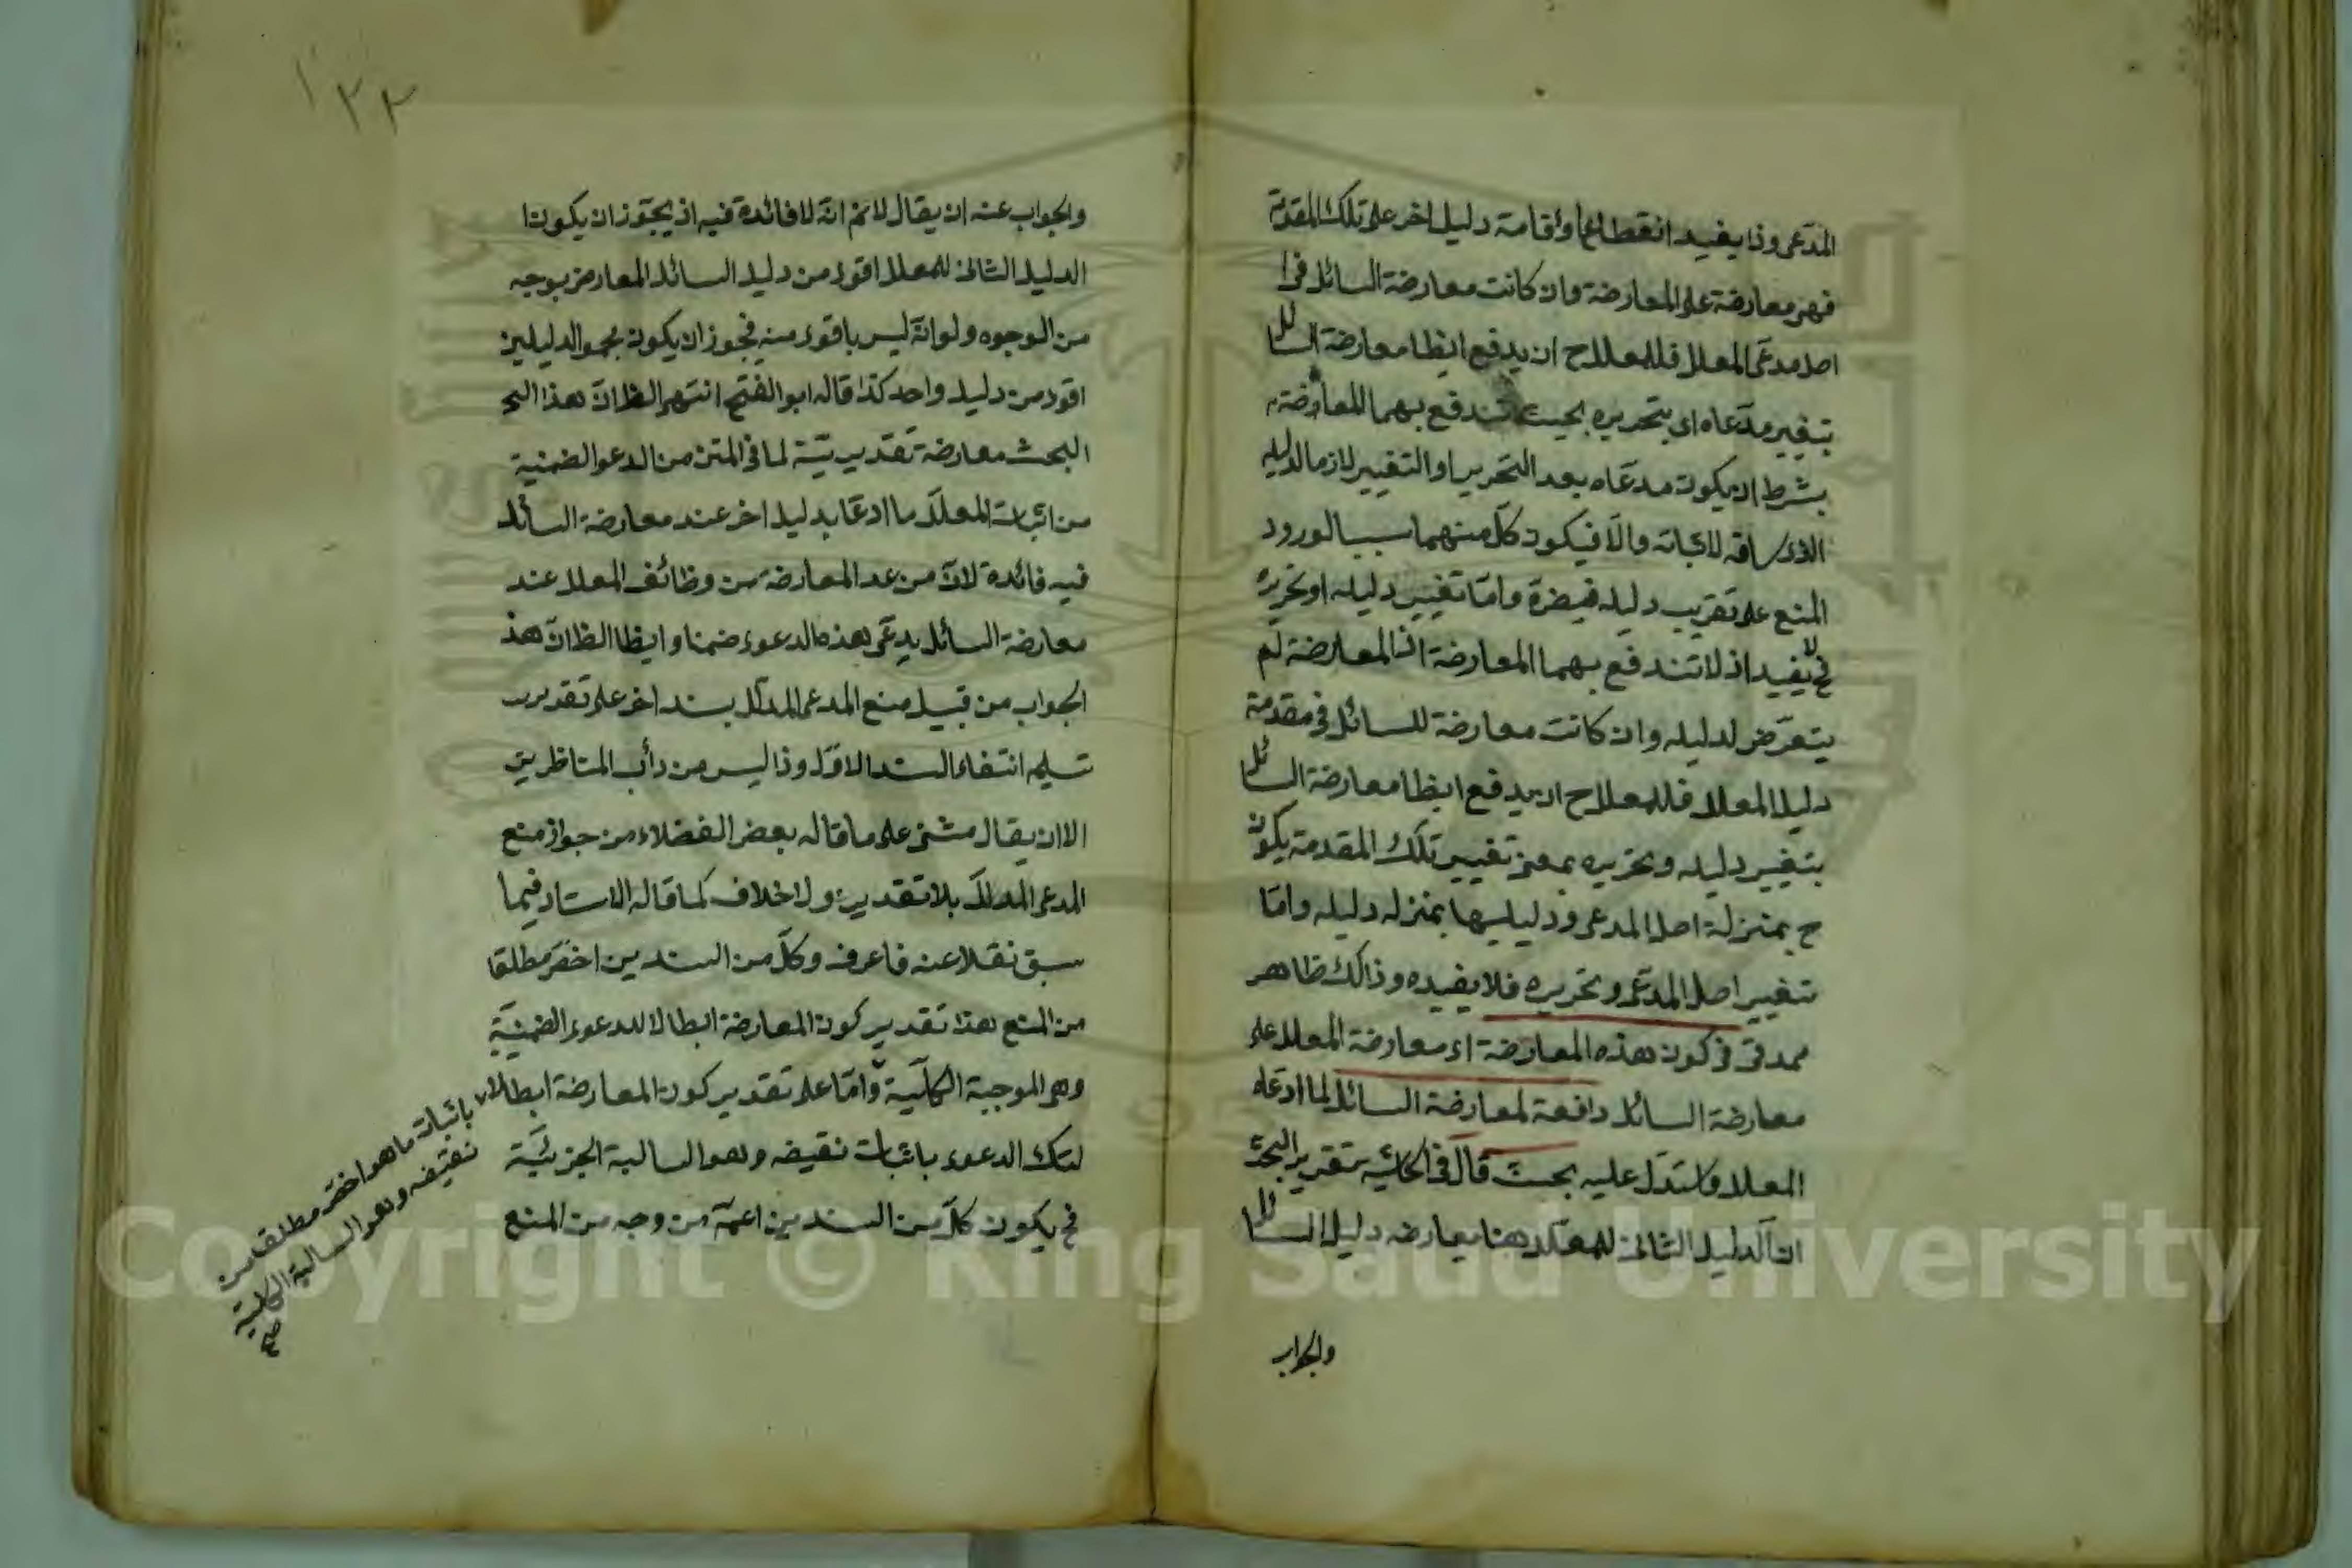 المدعى وذا يفيد انقطاعها واقامة دليل اخر على تلك المقدمة
فهى معارضة على المعارضة وان كانت معارضة السائل فى ا
اصل مدعى المعلل فللمعلل ح ان يدفع ايظا معارضة السائل
بتغيير مدعاه اى بتحريره بحيث تندفع بهما المعارضة
بشرط ان يكون مدعاه بعد التحرير او التغيير لازما لدليله
الذى ساقه لاثباته والا فيكون كل منهما سببا لورود
المنع على تقريب دليله فيضره واما تغيير دليله او تحريره
فح لا يفيد اذ لا تندفع بهما المعارضة اذ المعارضة لم
يتعرض لدليله وان كانت معارضة للسائل فى مقدمة
دليل المعلل فللمعلل ح ان يدفع ايظا معارضة السائل
بتغيير دليله وتحريره بمعنى تغيير تلك المقدمة يكون
ح بمنزلة اصل المدعى ودليلها بمنزله دليله واما
تغيير اصل المدعى وتحريره فلا يفيده وذالك ظاهر
ممدقى فى كون هذه المعارضة اى معارضة المعلل على
معارضة السائل دافعة لمعارضة السائل لما ادعاه
المعلل واستدل عليه بحث قال فى الحاشيه تقرير البحث
ان الدليل الثانى للمعلل ههنا يعارضه دليل السائل
والجواب
١٢٢
والجواب عنه ان يقال لانم انه لا فائدة فيه اذ يجوز ان يكون ا
الدليل الثانى للمعلل اقوى من دليل السائل المعارض بوجه
من الوجوه ولو انه ليس باقوى منه فيجوز ان يكون مجمو الدليلين
اقوى من دليل واحد كذا قاله ابو الفتح انتهى الظ ان هذا البح
البحث معارضة تقديرية لما فى المتن من الدعوا الضمنية
من اثبات المعلل ما ادعا بدليل اخر عند معارضة السائل
فيه فائدة لان من عد المعارضة من وظائف المعلل عند
معارضة السائل يدعى بهذه الدعوى ضمنا وايظا الظ ان هذ
الجواب من قبيل منع المدعى المدلل بسند اخر على تقدير
تسليم انتفاء السند الاول وذا ليس من دأب المناظرين
الا ان يقال مشى على ما قاله بعض الفضلاء من جواز منع
المدعى المدلل بلا تقدير ولا خلاف كما قاله الاستاد فيما
سبق نقلا عنه فاعرف وكل من السندين اخص مطلقا
من المنع هذا تقدير كون المعارضة ابطالا للدعوى الضمنية
وهى الموجبة الكلية واما على تقدير كون المعارضة ابطالا
لتلك الدعوى باثبات نقيضه وهو السالبة الجزئية
فح يكون كل من السندين اعم من وجه من المنع
باثبات ما هو اخص مطلقا من
نقيضه وهو السالبة الكلية
صح
Copyright © King Saud University